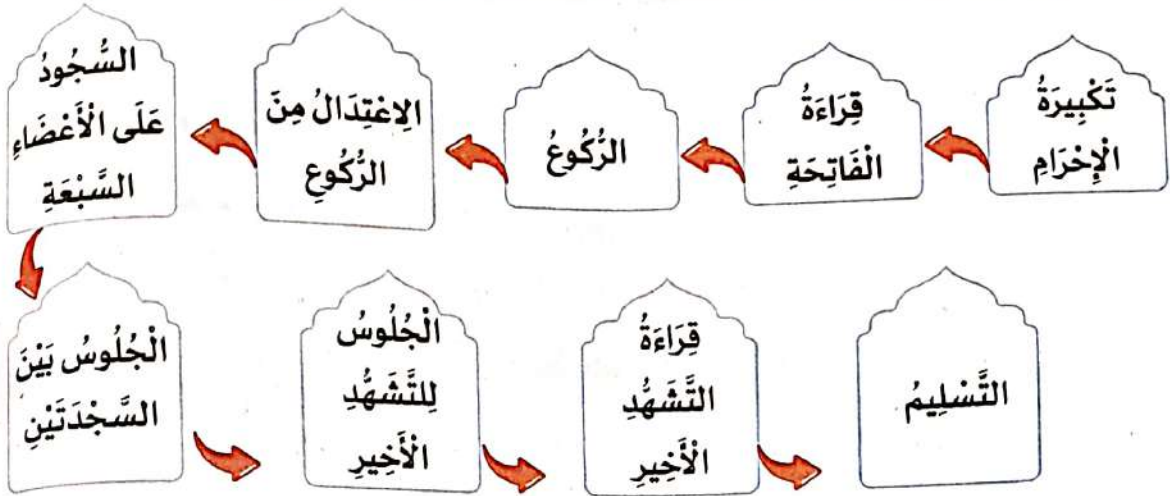 تَكْبِيرَةُ
الْإِحْرَامِ
قِرَاءَةُ
الْفَاتِحَةِ
الرُّكُوعُ
الِاعْتِدَالُ مِنَ
الرُّكُوعِ
السُّجُودُ
عَلَى الْأَعْضَاءِ
السَّبْعَةِ
الْجُلُوسُ بَيْنَ
السَّجْدَتَيْنِ
الْجُلُوسُ
لِلتَّشَهُّدِ
الْأَخِيرِ
قِرَاءَةُ
التَّشَهُّدِ
الْأَخِيرِ
التَّسْلِيمُ